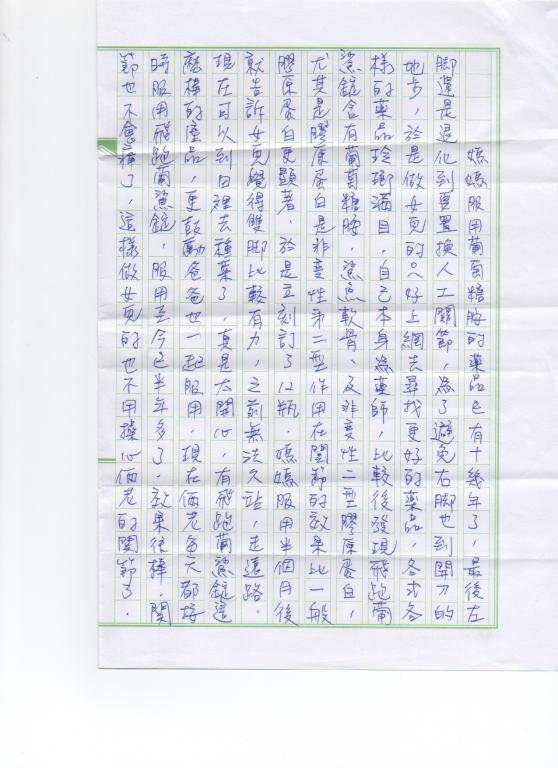 媽媽服用葡萄糖胺的藥品已有十幾年了，最後左
脚還是退化到要置換人工關節，為了避免右脚也到開刀的
地步，於是做女兒的只好上網去尋找更好的藥品，各式各
樣的藥品玲瑯滿目，自己本身為藥師，比較後發現飛跑葡
鯊錠含有葡萄糖胺，鯊魚軟骨、及非變性二型膠原蛋白，
尤其是膠原蛋白是非變性第二型作用在関節的效果比一般
膠原蛋白更顯著．於是立刻訂了12瓶．媽媽服用半個月後
就告訴女兒覺得雙脚比較有力，之前無法久站，走遠路．
現在可以到田裡去種菜了，真是太開心，有飛跑葡鯊錠這
麼棒的產品，更鼓動爸爸也一起服用．現在倆老每天都按
時服用飛跑葡鯊錠．服用至今已半年多了．效果很棒．関
節也不會痛了，這樣做女兒的也不用操心倆老的関節了．